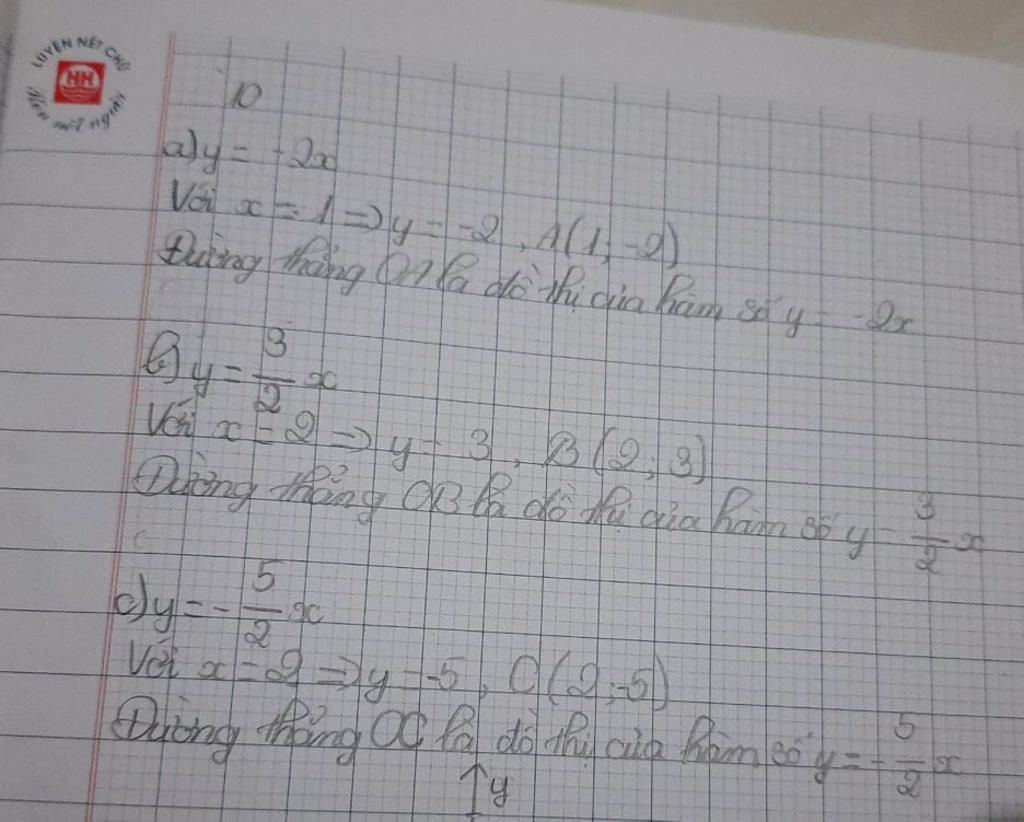 LUYỆN NÉT CHỮ
HH
Rèn nết người
10
a) y = -2x
Với x = 1 => y = -2, A(1; -2)
Đường thẳng OA là đồ thị của hàm số y = -2x
b) y = 3/2 x
Với x = 2 => y = 3, B(2; 3)
Đường thẳng OB là đồ thị của hàm số y = 3/2 x
c) y = -5/2 x
Với x = 2 => y = -5, C(2; -5)
Đường thẳng OC là đồ thị của hàm số y = -5/2 x
y